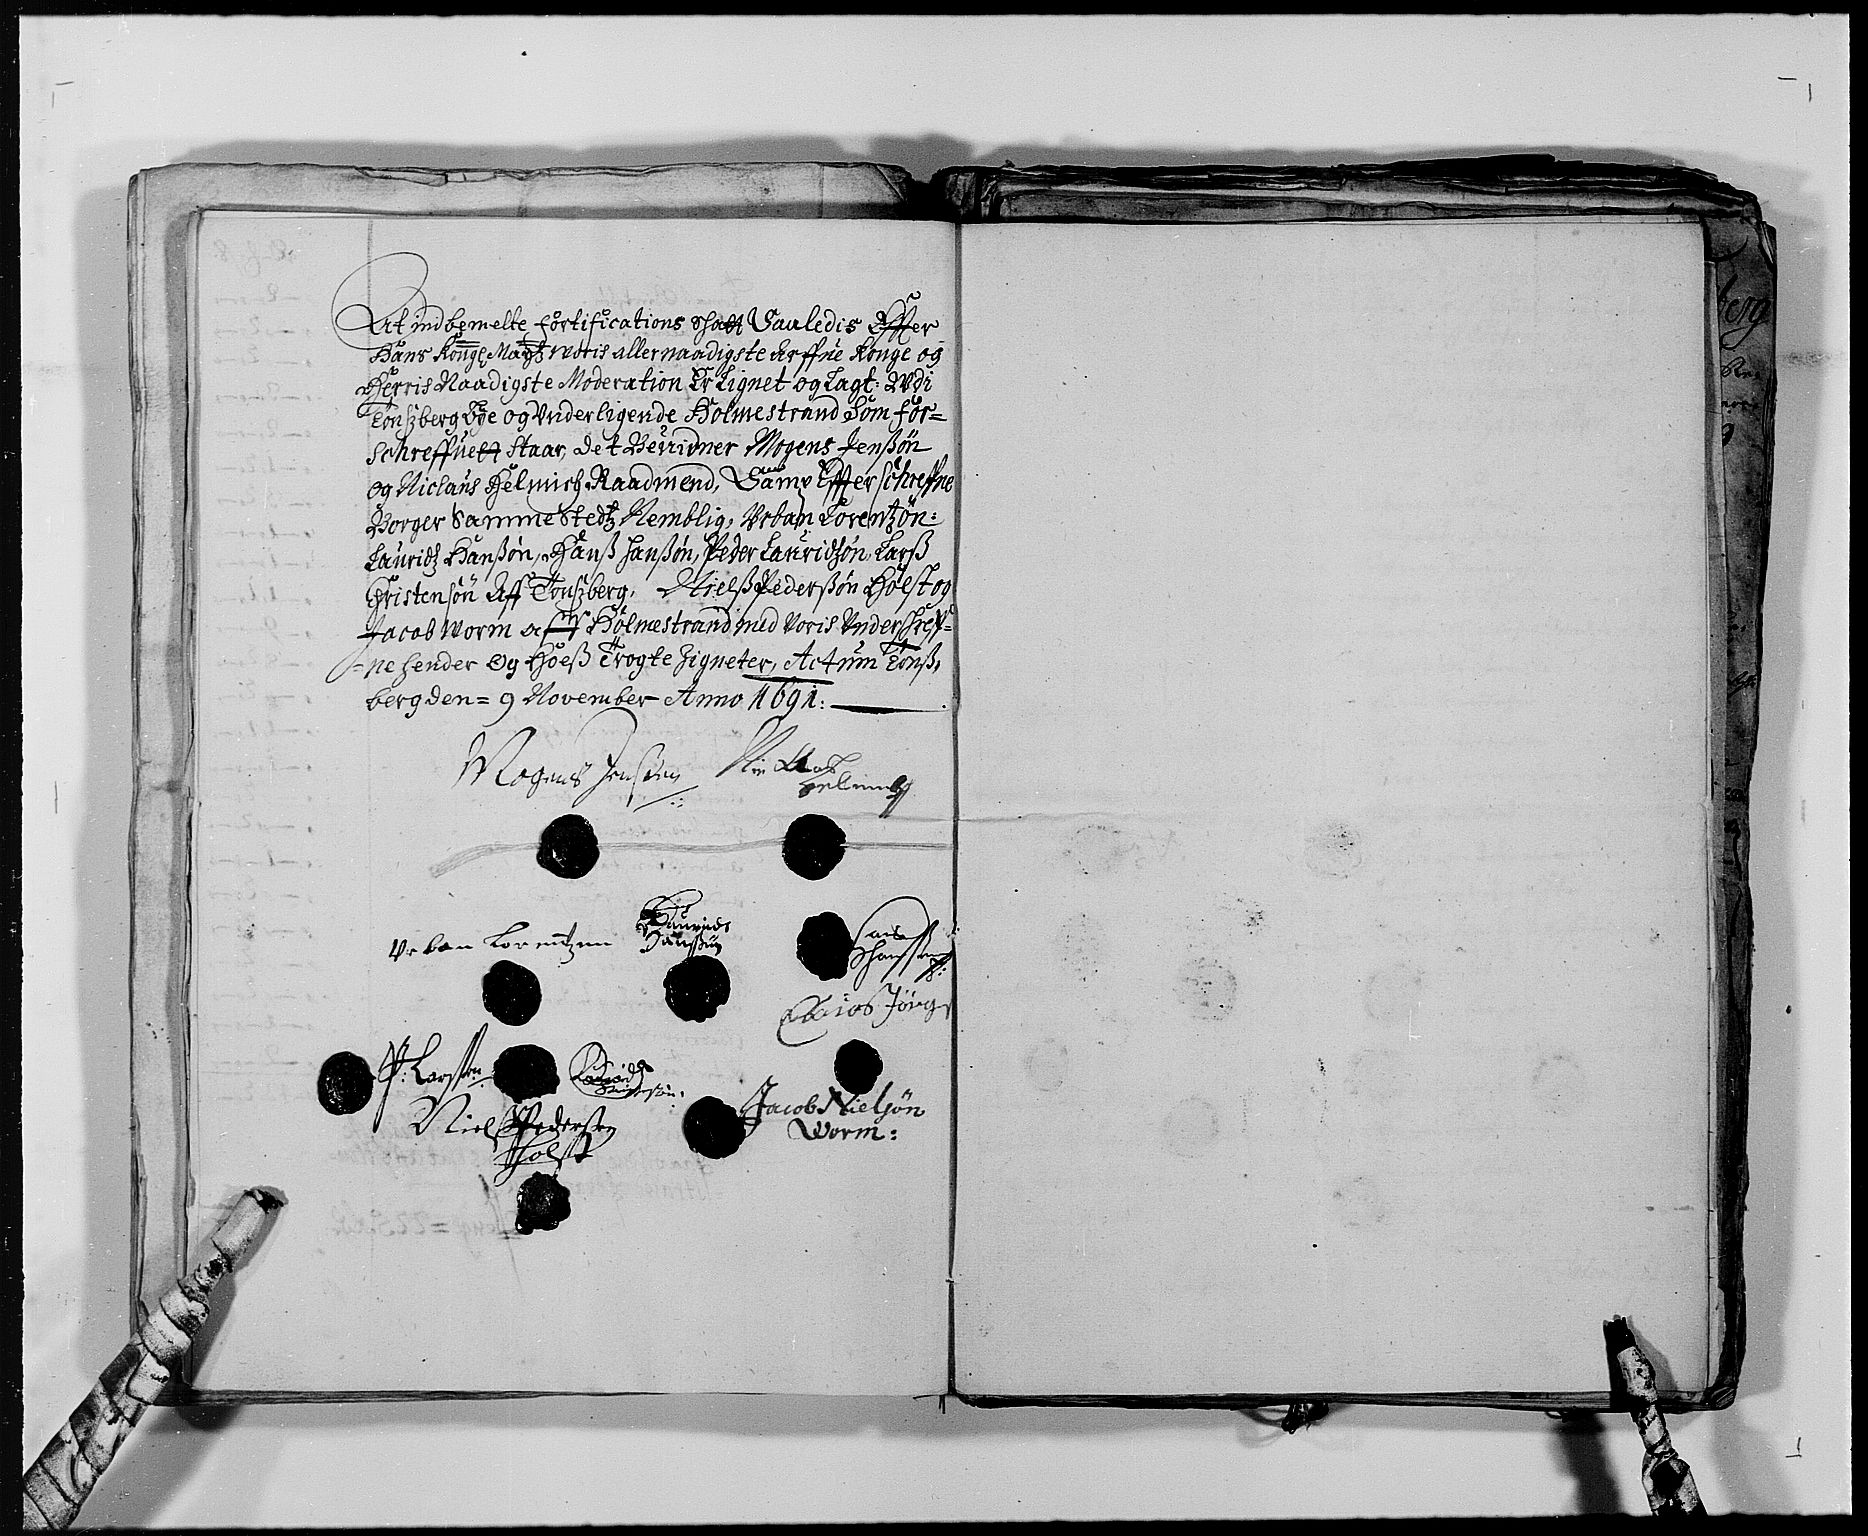 At indbemelte fortifications Shatt Saaledis Effter
Hans Kongl Maytz voris allernaadigste Arffue Konge og
Herris Naadigste Moderation Er Lignet og Lagt: Udi
Tonszberg Bye og Underligende Holmestrand Som for=
Schreffuett Staar, det Bevidner Mogens Jenßön
og Niclaus Helmich Raadmend, Samt Effterschreffne
Borger Sammestedtz Nemblig, Urban Lorentzön:
Lauridtz Hanßön, Hanß Hanßön, Peder Lauridsön, Larß
Christensön Aff Tonszberg, Nielß Pederßön Holst og
Jacob Worm aff Holmestrand med Voris Underschreff=
=ne hender og hoeß Trogte Zigneter, Actum Tönß,
berg den = 9 November Anno 1691:
Mogens Jensen
Helmich
Urban Lorentzen
Laurids
Hanssön
Hans
Hanssen
P: Larssen
Niels Pedersen
Holst
Jacob Nielsön
Worm:
berg